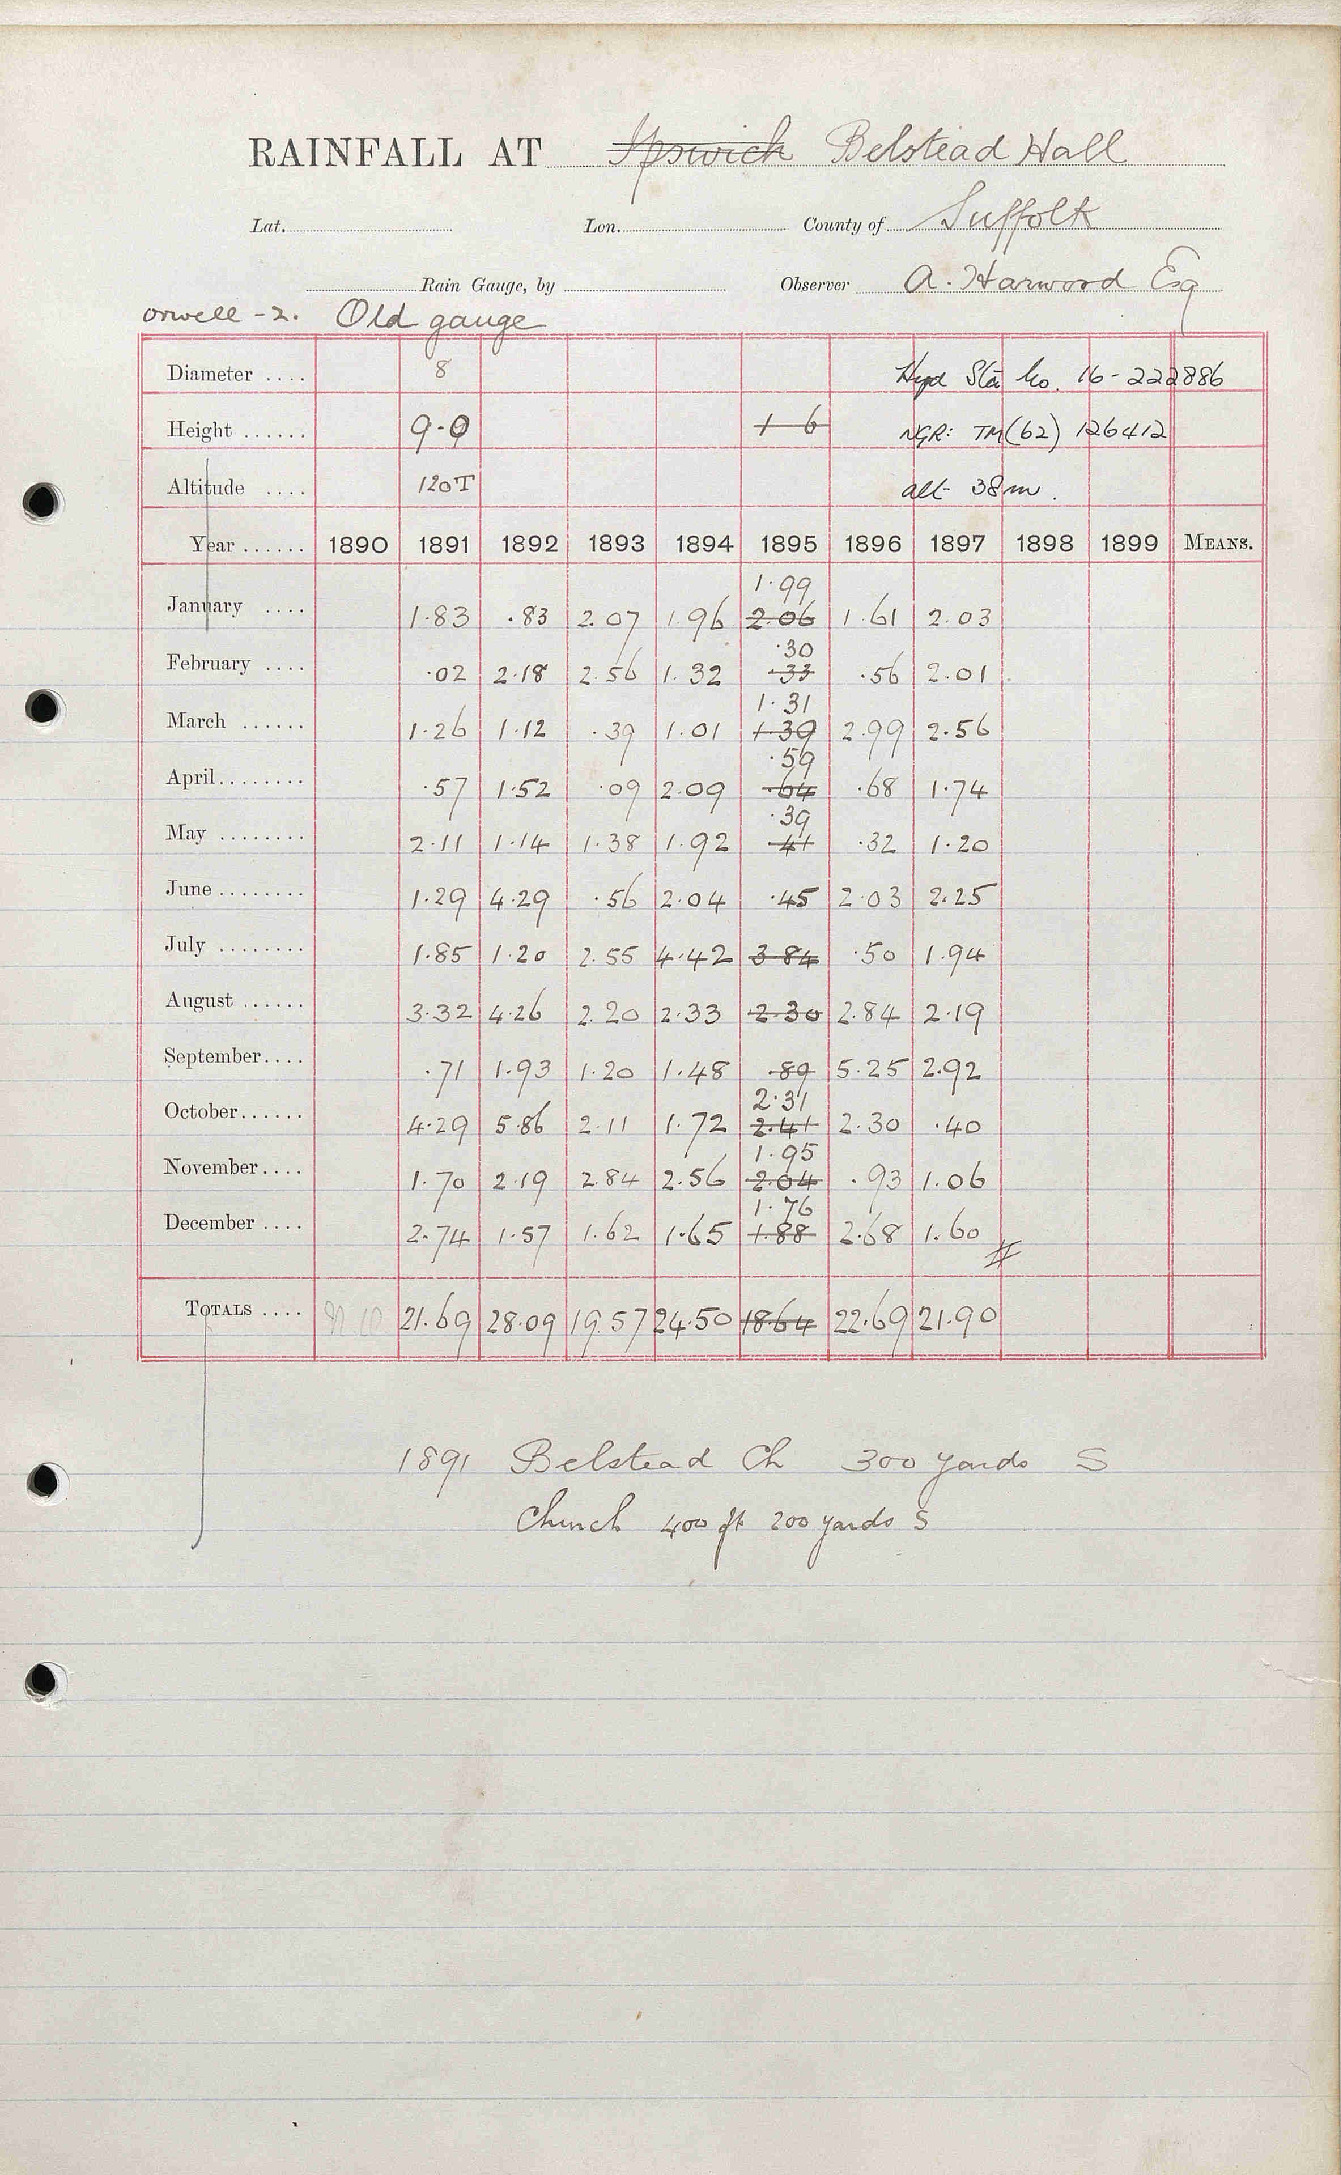 RAINFALL AT Ipswich Belstead Hall
Lat. Lon. County of Suffolk
Rain Gauge, by Observer A. Harwood Esq
Orwell - 2. Old gauge
Diameter .... 8 Hyd Sta No. 16 - 222886
Height ...... 9-0 1 6 NGR: TM (62) 126412
Altitude .... 120T alt 38m.
Year ...... 1890 1891 1892 1893 1894 1895 1896 1897 1898 1899 MEANS.
1.99
January .... 1.83 .83 2.07 1.96 2.06 1.61 2.03
.30
February .... .02 2.18 2.56 1.32 .33 .56 2.01
1.31
March ...... 1.26 1.12 .39 1.01 1.39 2.99 2.56
.59
April........ .57 1.52 .09 2.09 .64 .68 1.74
.39
May ........ 2.11 1.14 1.38 1.92 .41 .32 1.20
June........ 1.29 4.29 .56 2.04 .45 2.03 2.25
July ........ 1.85 1.20 2.55 4.42 3.84 .50 1.94
August ...... 3.32 4.26 2.20 2.33 2.30 2.84 2.19
September.... .71 1.93 1.20 1.48 .89 5.25 2.92
2.31
October...... 4.29 5.86 2.11 1.72 2.41 2.30 .40
1.95
November.... 1.70 2.19 2.84 2.56 2.04 .93 1.06
1.76
December .... 2.74 1.57 1.62 1.65 1.88 2.68 1.60
TOTALS .... 21.69 28.09 19.57 24.50 18.64 22.69 21.90
1891 Belstead Ch 300 yards S
Church 400 ft 200 yards S